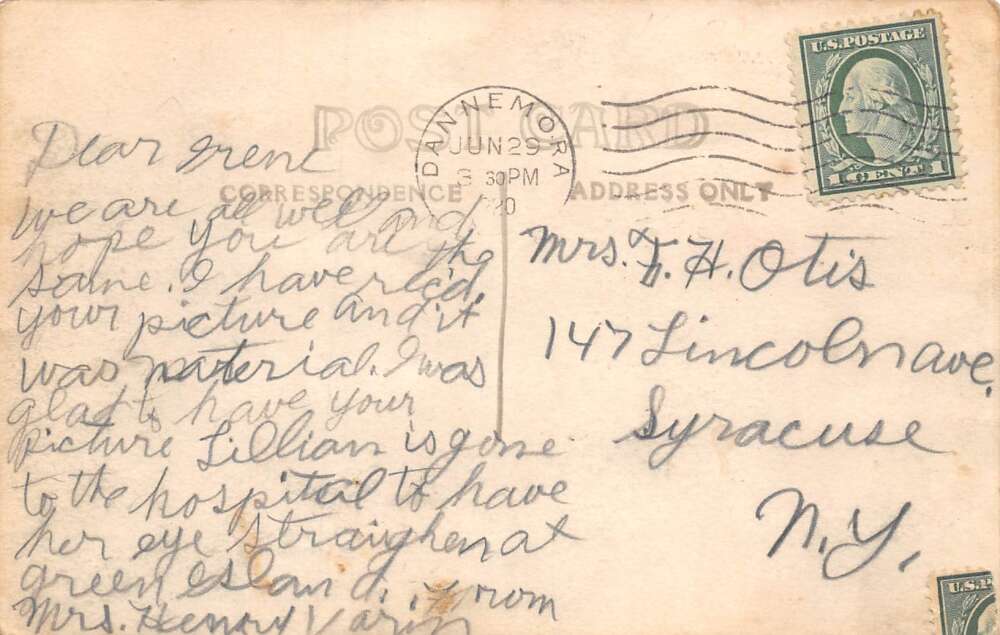 POST CARD
CORRESPONDENCE
ADDRESS ONLY
DANNEMORA
JUN 29
3 30 PM
20
U.S. POSTAGE
1 CENT 1
Dear Irene
we are all well and
hope you are the
same. I have rec'd
your picture and it
was material. I was
glad to have your
picture Lillian is gone
to the hospital to have
her eye straighen at
green Island. From
Mrs. Henry Varin
Mrs. F. H. Otis
147 Lincoln ave.
Syracuse
N.Y.
U.S.P